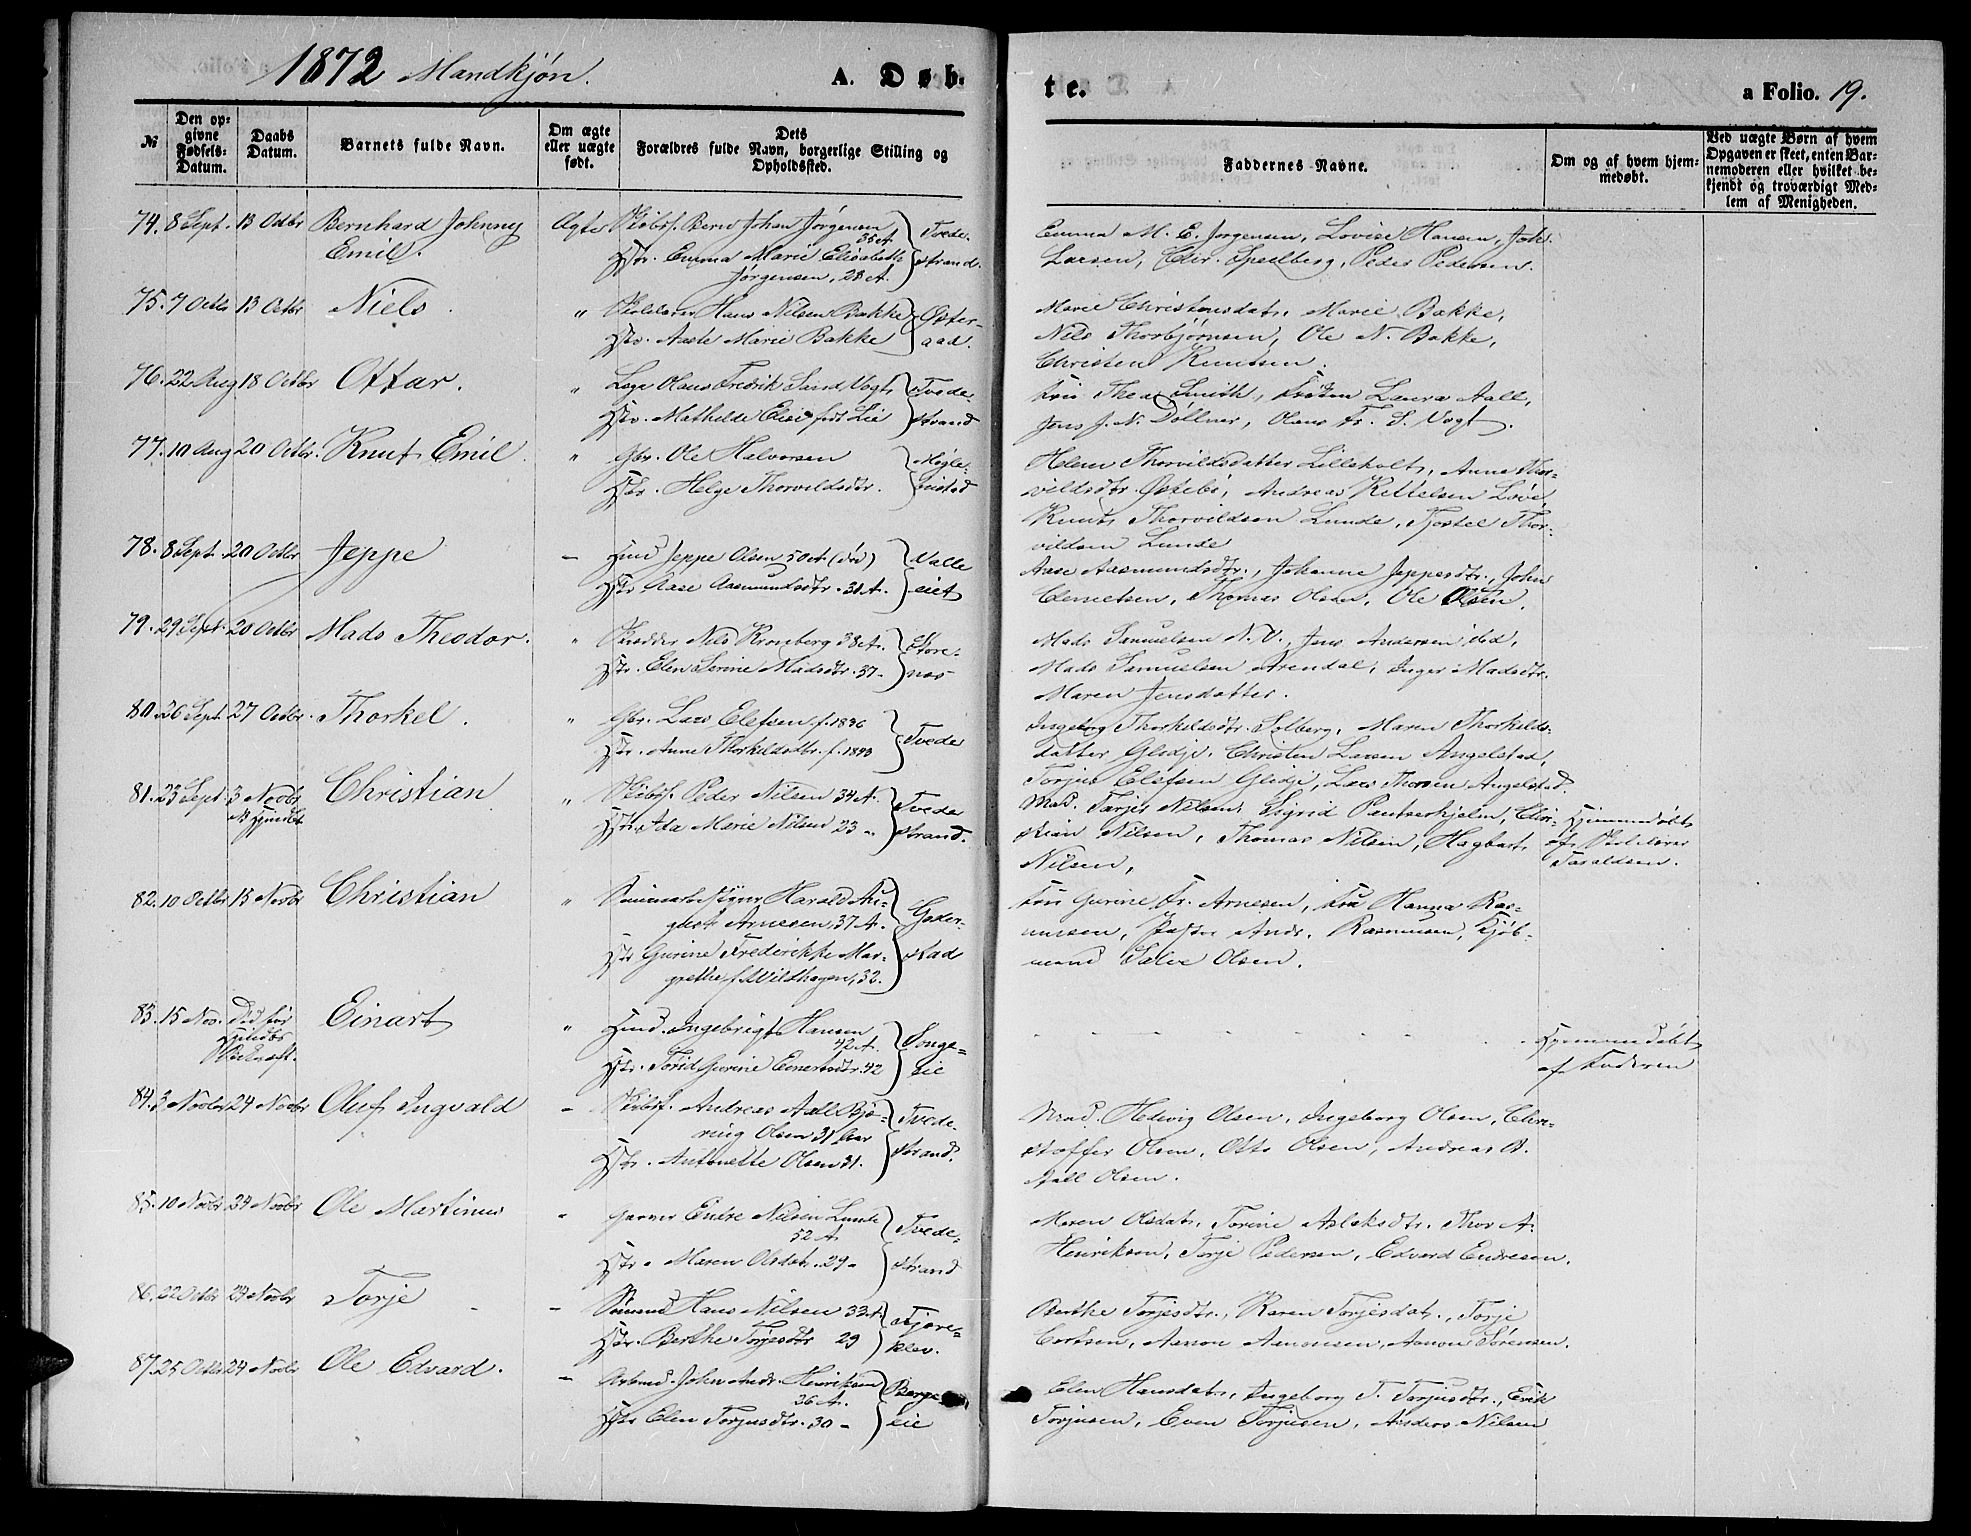 1872 Mandkjøn. A. Døb-
te. a Folio. 19.
№ Den opgivne Fødsels-Datum. Daabs Datum. Barnets fulde Navn. Om ægte eller uægte født. Dets Forældres fulde Navn, borgerlige Stilling og Opholdssted.
Faddernes Navne. Om og af hvem hjemmedøbt. Ved uægte Børn af hvem Opgaven er skeet, enten Barnemoderen eller hvilket bekjendt og troværdigt Medlem af Menigheden.
74. 8 Sept. 13 Octbr Bernhard Johnny Ægte Jørgensen Tvede-
Emil. 35 A. Hstr. Emma Marie Elisabeth strand.
Jørgensen, 28 A.
Emma M. E. Jørgensen, Lovise Hansen, Joh.
Larsen, Chr. Spedberg, Peder Pedersen.
75. 7 Octbr 13 Octbr Niels " Hans Nilsen Bakke Øster-
Hstr. Aaste Marie Bakke aad.
Marie Christensdat., Marie Bakke,
Nils Thorbjørnsen, Ole N. Bakke,
Christen Knudsen.
76. 22 Aug 18 Octbr Ottar. " Olaus Fredrik Sand Vogt Tvede-
Hstr. Mathilde Elise født Lie strand
Fru Thea Smith, Frøken Laura Aall,
Jens J. N. Döllner, Olaus Fr. S. Vogt.
77. 10 Aug 20 Octbr. Knut Emil " Gbr. Ole Halvorsen
Hstr. Helge Thorvildsdtr.
Helene Thorvildsdatter Lilleholt, Anne Thor-
vildsdtr. Østebø, Andreas Kittelsen
Knut Thorvildsen Lunde, Tostel Thor-
vildsen Lunde
78. 8 Sept. 20 Octbr Jeppe — Jeppe Olsen 50 A (død) Valle
Hstr. Aase Aasmundsdtr. 31 A. eiet
Aase Aasmundsdtr., Johanne Jeppesdtr., John
Clemetsen, Thomas Olsen, Ole Olsen.
79. 29 Sept. 20 Octbr Mads Theodor. " Nils Kronberg 38 A. Store-
Hstr. Elen Serine Madsdtr. 37- næs
Mads Samuelsen N. V., Jens Andersen ibd,
Mads Samuelsen Arendal, Inger Madsdtr.
Maren Jensdatter.
80. 26 Sept. 27 Octbr. Thorkel. " Gbr. Lars Elefsen f. 1836 Tvede
Hstr. Anne Thorkildsdtr. f. 1843
Ingeborg Thorkildsdtr. Solberg, Maren Thorkilds-
datter Glidje, Christen Larsen Angelstad,
Torjus Elefsen Glidje, Lars Thorsen Angelstad.
81. 23 Sept. 3 Novbr Christian " Peder Nilsen 34 A. Tvede
Hstr. Ada Marie Nilsen 23 - strand.
Mad. Tarjer Nilsen, Sigrid Pantserhjelm, Chri-
stian Nilsen, Thomas Nilsen, Hagbart
Nilsen,
Hjemmedøbt
af
Taraldsen.
82. 10 Octbr 15 Novbr Christian " Harald Au- Goder-
gust Arnesen, 37 A. stad
Hstr. Gurine Frederikke Mar-
grethe f. Wildhagen, 32.
Fru Gurine Fr. Arnesen, Fru Hanna Ras-
mussen, Pastor Andr. Rasmussen, Kjøb-
mand Salve Olsen.
83. 15 Nov. Død før Einart " Hmd. Ingebrigt Hansen Songe-
42 A. eie
Hstr. Torid Gurine Einersdtr. 42
Hjemmedøbt
af Faderen
84. 3 Novbr 24 Novbr Oluf Ingvald — Andreas Aall Bjø- Tvede-
ring Olsen 31 Aar strand.
Hstr. Antonette Olsen 31.
Mad. Hedevig Olsen, Ingeborg Olsen, Chri-
stoffer Olsen, Otto Olsen, Andreas B.
Aall Olsen.
85. 10 Novbr 24 Novbr Ole Martinus " Garver Endre Nilsen Lunde Tvede-
52 A.
Hstr. Maren Olsdat. 29 - strand
Maren Olsdat., Torine Aslaksdtr. Thor A.
Henriksen, Torje Pedersen, Edvard Endresen.
86. 22 Octbr 24 Novbr Torje — Sømand Hans Nilsen 33 A. Stjære-
Hstr. Berthe Torjesdtr 29 klev.
Berthe Torjesdtr., Karen Torjesdat., Torje
Aanon Aanonsen, Aanon Sørensen.
87. 25 Octbr 24 Novbr Ole Edvard. — Arbmd. John Andr. Henriksen Berge
26 A.
Hstr Elen Torjusdtr. 30 - eie
Elen Hansdat., Ingeborg T. Torjusdtr., Erik
Torjusen, Even Torjusen, Anders Nilsen